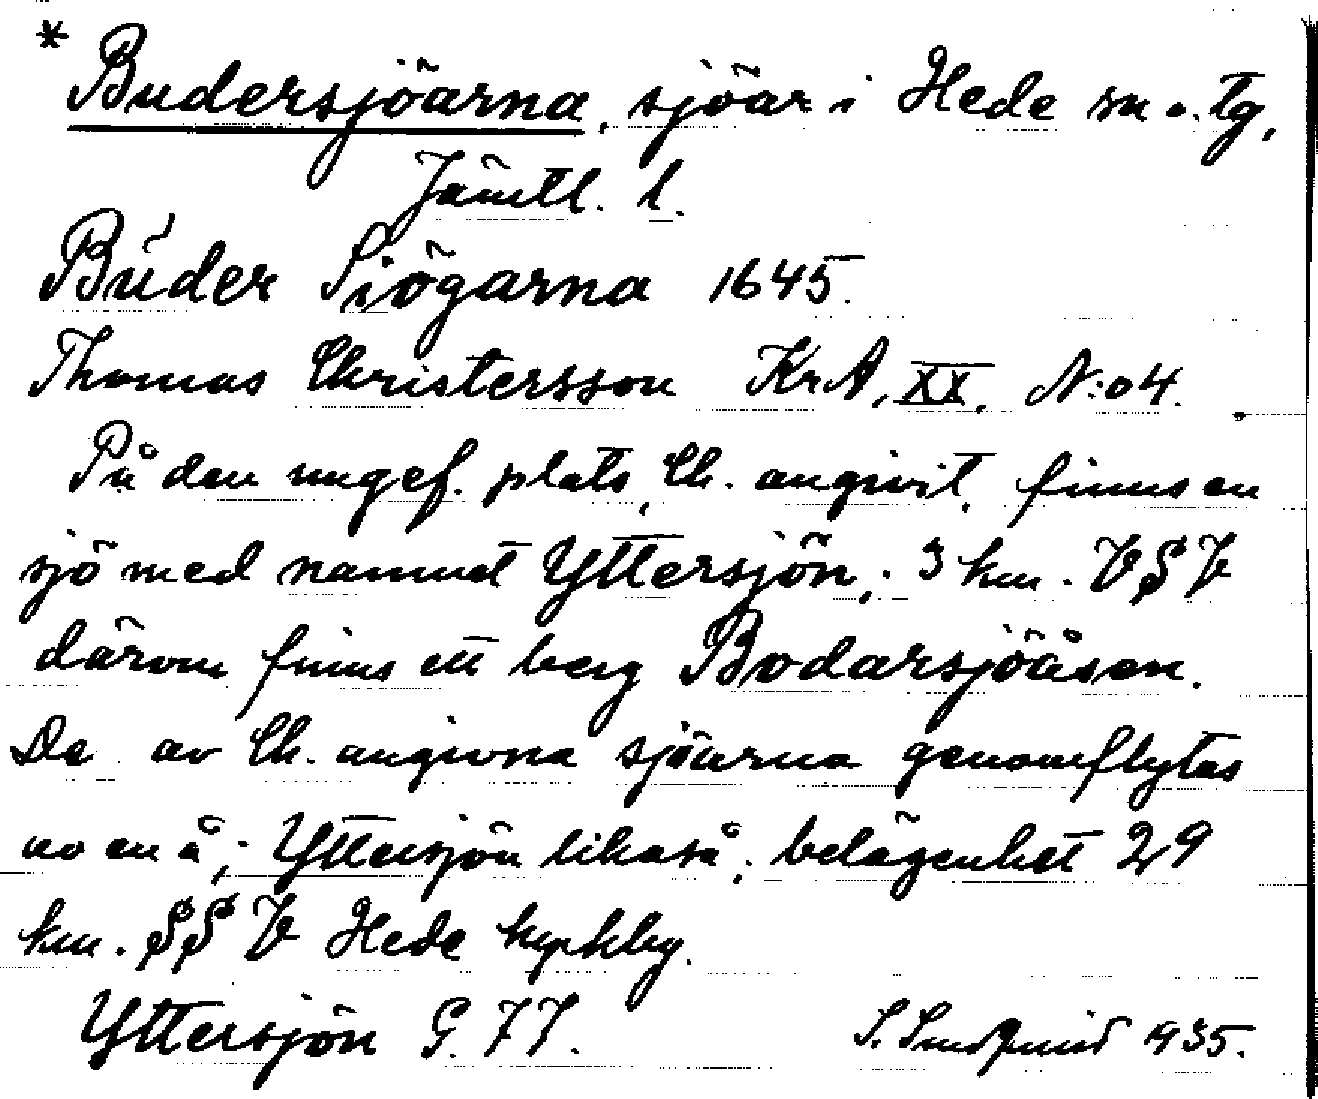 * Budersjöarna, sjöar i Hede sn o. tg,
Jämtl. l.
Buder Siögarna 1645.
Thomas Christersson KrA, XX, N:o 4.
På den ungef. plats, Ch. angivit, finns en
sjö med namnet Yttersjön; 3 km. VSV
därom finns ett berg Bodarsjöåsen.
De av Ch. angivna sjöarna genomflytas
av en å; Yttersjön likaså; belägenhet 29
km. SSV Hede kyrkby.
Yttersjön G. 77. S. 1935.